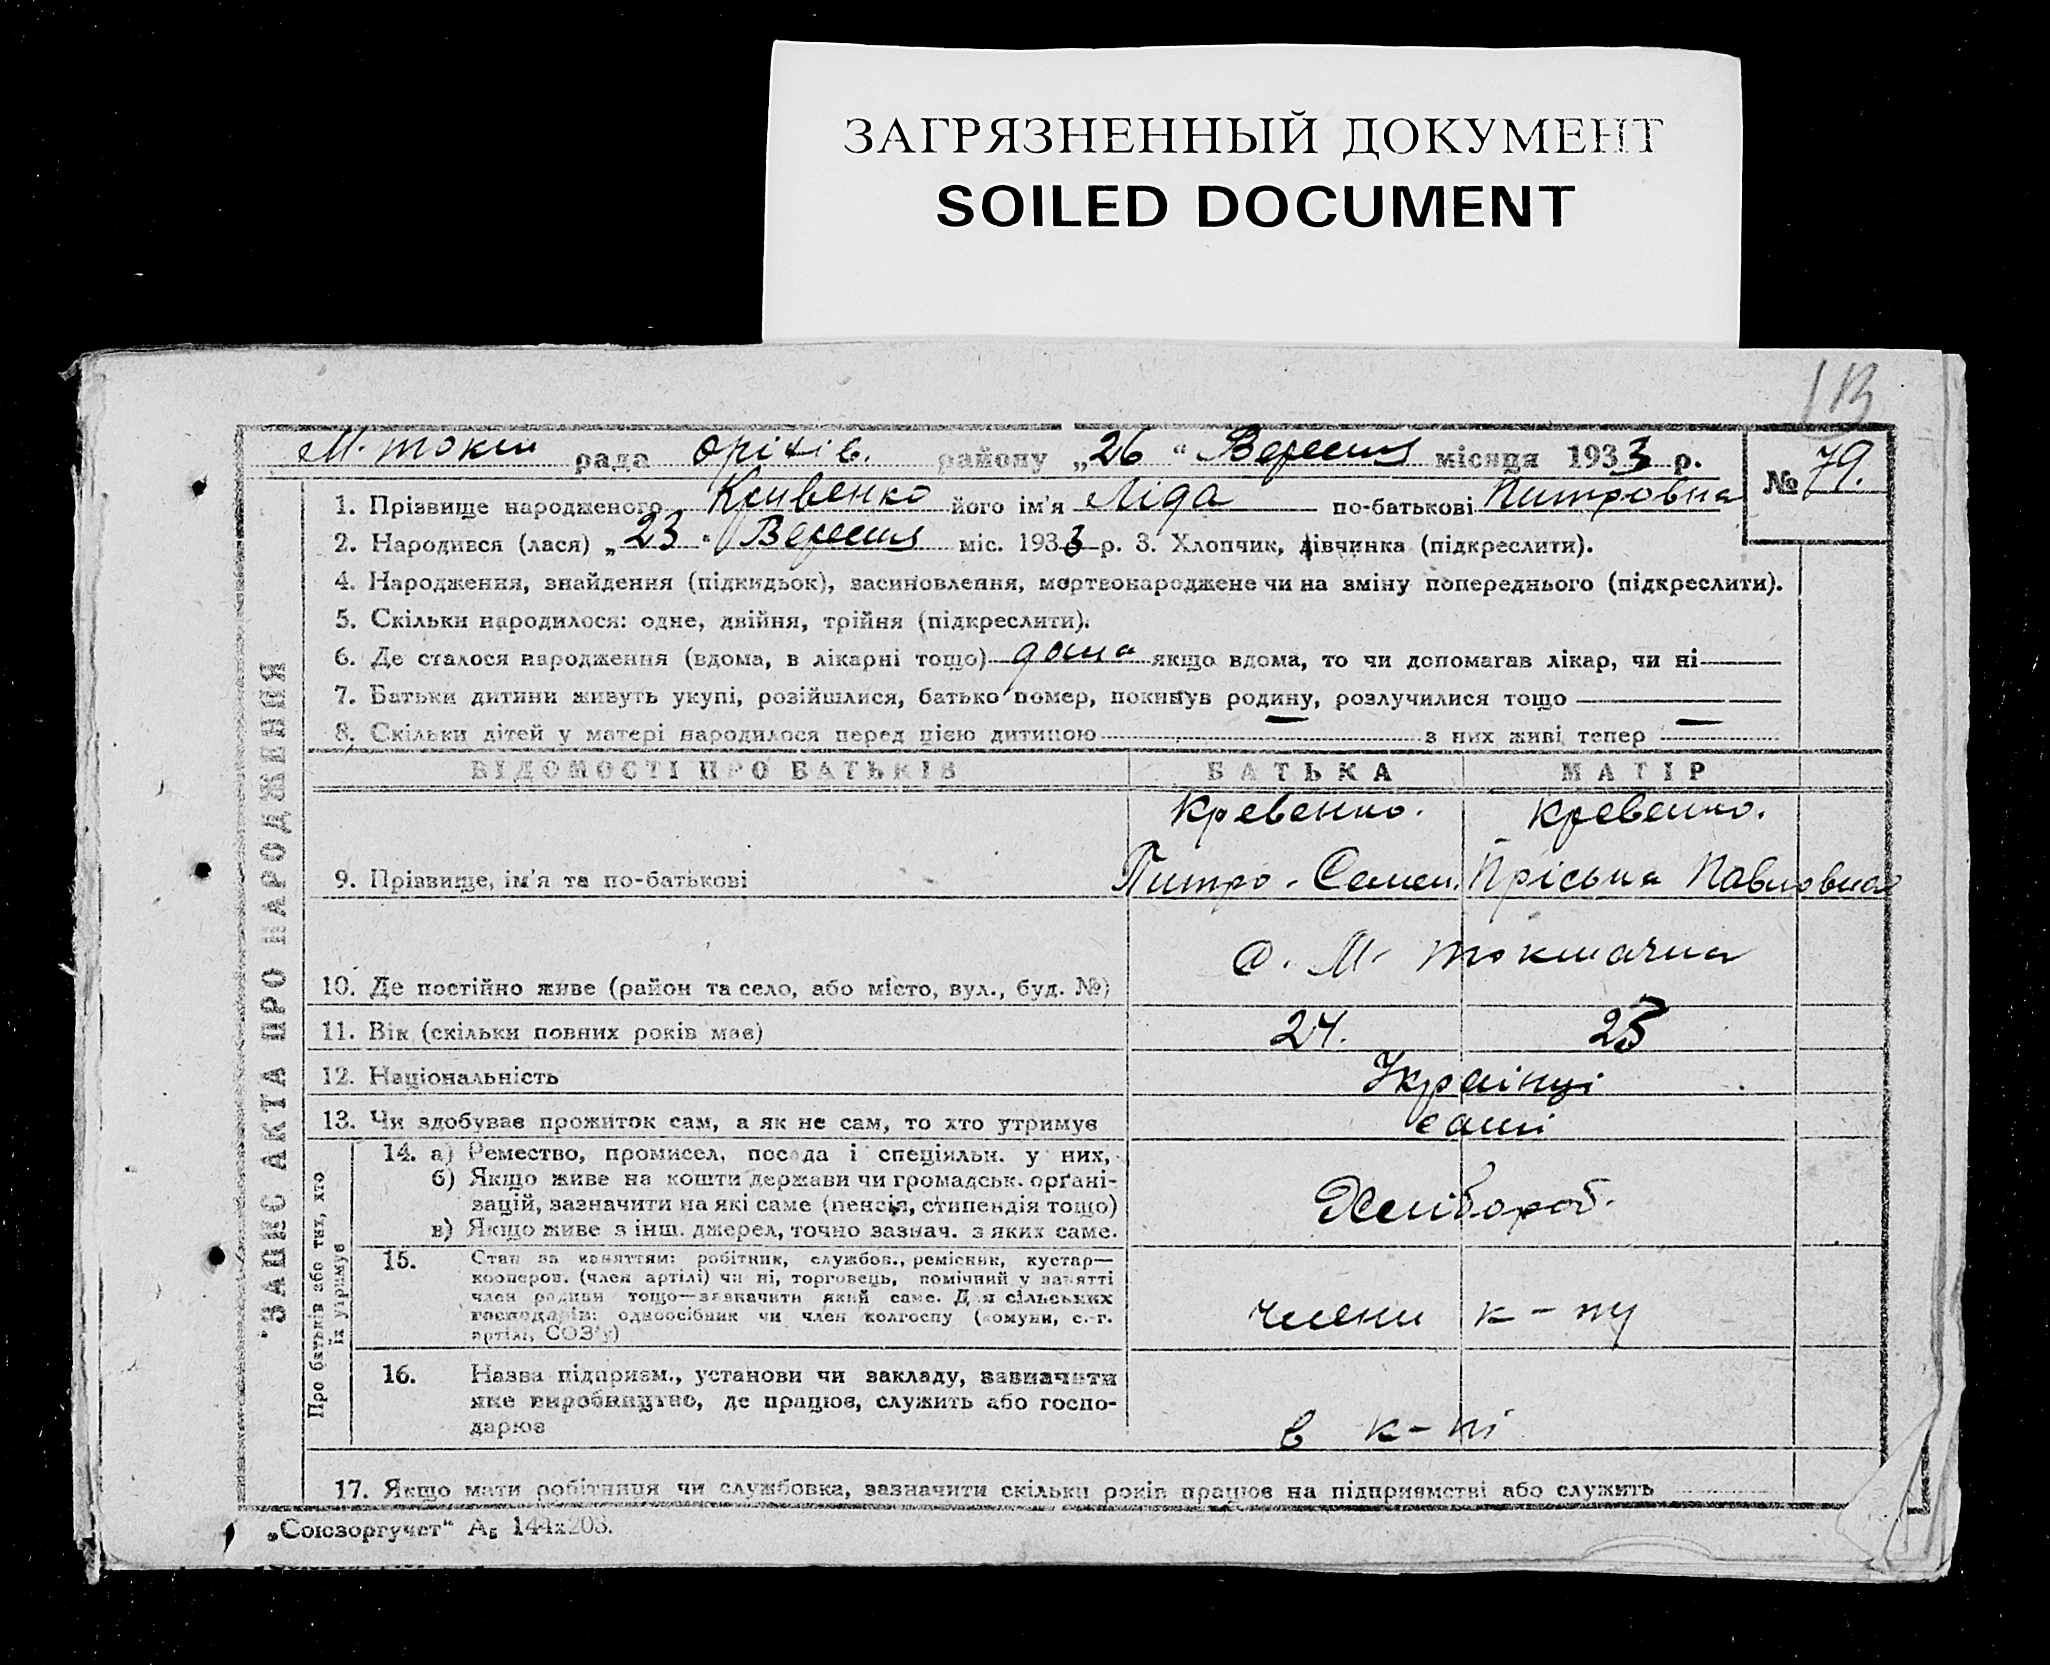 ЗАГРЯЗНЕННЫЙ ДОКУМЕНТ
SOILED DOCUMENT
М. токм рада оріхів. району „26“ Вересня місяця 1933 р.
№ 79.
1. Прізвище народженого Кривенко його ім'я Ліда по-батькові Питровна
2. Народився (лася) „23“ Вересня міс. 1933 р. 3. Хлопчик, дівчинка (підкреслити).
4. Народження, знайдення (підкидьок), засиновлення, мертвонароджене чи на зміну попереднього (підкреслити).
5. Скільки народилося: одне, двійня, трійня (підкреслити).
6. Де сталося народження (вдома, в лікарні тощо) дома якщо вдома, то чи допомагав лікар, чи ні
7. Батьки дитини живуть укупі, розійшлися, батько помер, покинув родину, розлучилися тощо
8. Скільки дітей у матері народилося перед цією дитиною — з них живі тепер —
ВІДОМОСТІ ПРО БАТЬКІВ БАТЬКА МАТІР
Кревенко. Кревенко.
9. Прізвище, ім'я та по-батькові Питро. Семен. Пріська Павловная
10. Де постійно живе (район та село, або місто, вул., буд. №) с. М. токмачка
11. Вік (скільки повних років має) 24. 23
12. Національність Українці
13. Чи здобуває прожиток сам, а як не сам, то хто утримує самі
14. а) Ремество, промисел, посада і спеціяльн. у них,
б) Якщо живе на кошти держави чи громадськ. орґані-
зацій, зазначити на які саме (пенсія, стипендія тощо)
в) Якщо живе з інш. джерел, точно зазнач. з яких саме.
Хлібороб.
15. Стан за заняттям: робітник, службов., ремісник, кустар—
кооперов. (член артілі) чи ні, торговець, помічний у занятті
член родини тощо—зазначити який саме. Для сільських
господарів: одноосібник чи член колгоспу (комуни, с.-г.
артілі, СОЗ'у)
члени к-пу
16. Назва підприєм., установи чи закладу, зазначити
яке виробництво, де працює, служить або госпо-
дарює
в к-пі
17. Якщо мати робітниця чи службовка, зазначити скільки років працює на підприємстві або служить
ЗАПИС АКТА ПРО НАРОДЖЕННЯ
Про батьків або тих, хто
їх утримує
„Союзоргучет“ А5 144х203.